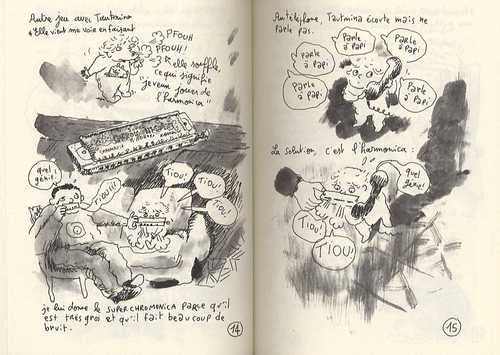 Autre jeu avec Tautmina
Elle vient me voir en faisant
PFOUH!
PFOUH!
elle souffle,
ce qui signifie
"je veux jouer de
l'harmonica"
quel
génie!
TIOU!!!
TIOU!
TIOU!
TIOU!
je lui donne le SUPERCHROMONICA PARCE qu'il
est TRÈS gros et qu'il fait beaucoup de
bruit.
14
Au téléphone, Tautmina écoute mais ne
parle pas.
PARLE
à PAPI
PARLE
à PAPI
PARLE
à PAPI
PARLE
à PAPI
PARLE
à PAPI
La solution, c'est l'harmonica :
quel
génie!
TIOU!
TIOU!
TIOU!
15